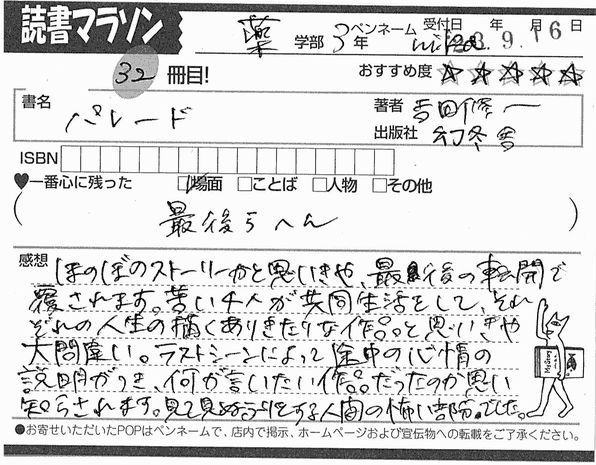 読書マラソン
薬 学部 3年 ペンネーム 受付日 年 月 日
3 9 16
32 冊目! おすすめ度 ☆☆☆☆☆
書名 パレード
著者 吉田修一
出版社 幻冬舎
ISBN
♥一番心に残った □場面 □ことば □人物 □その他
(最後らへん)
感想 ほのぼのストーリーかと思いきや、最後の転開で
覆されます。若い4人が共同生活をして、それ
ぞれの人生の描くありきたりな作品と思いきや
大間違い。ラストシーンによって途中の心情の
説明がつき、何が言いたい作品だったのか思い
知らされます。見て見ぬふりをする人間の怖い部分でした。
●お寄せいただいたPOPはペンネームで、店内で掲示、ホームページおよび宣伝物への転載をご了承ください。